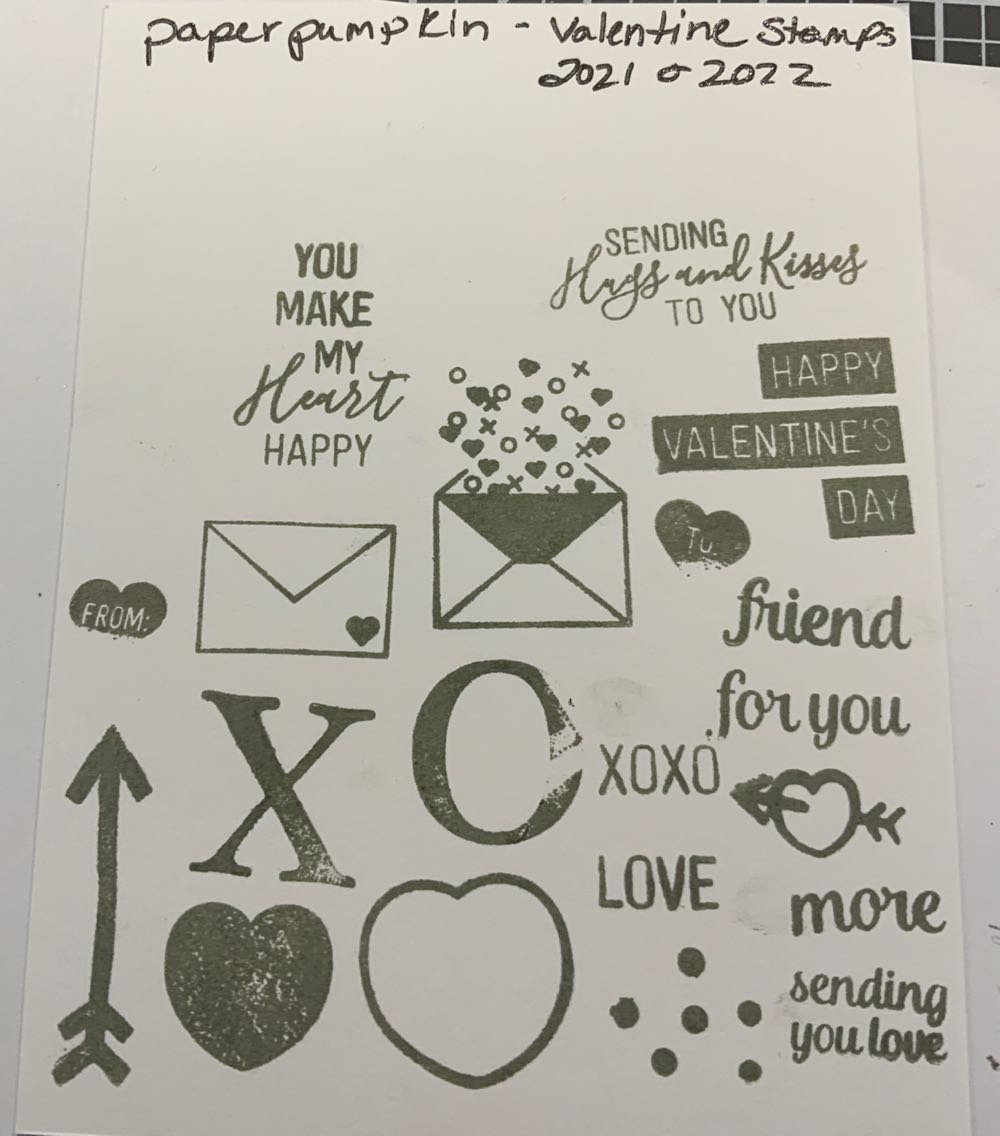 paperpumpkin - Valentine Stamps
2021 & 2022
YOU
MAKE
MY
Heart
HAPPY
SENDING
Hugs and Kisses
TO YOU
HAPPY
VALENTINE'S
DAY
TO:
FROM:
friend
for you
X
O
XOXO
LOVE
more
sending
you love